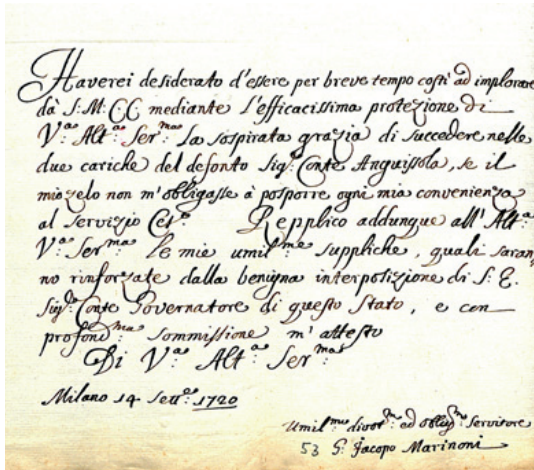 Haverei desiderato d'essere per breve tempo costì ad implorare
dà S: M: CC mediante l'efficacissima protezione di
V:ª Alt:ª Ser:ᵐᵃ la sospirata grazia di succedere nelle
due cariche del defonto Sig:ʳ Conte Anguissola, se il
mio zelo non m'obligasse à posporre ogni mia convenienza
al servizio Ces:º Repplico addunque all'Alt:ª
V:ª Ser:ᵐᵃ le mie umil:ᵐᵉ suppliche, quali saran,,
no rinforzate dalla benigna interposizione di S: E.
Sig:ʳ Conte Governatore di questo Stato, e con
profond:ᵐᵃ sommissione m'attesto
Di V:ª Alt:ª Ser:ᵐᵃ
Milano 14 Sett:ᵉ 1720
Umil:ᵐᵒ divot:ᵐᵒ ed oblig:ᵐᵒ servitore
53 G: Jacopo Marinoni